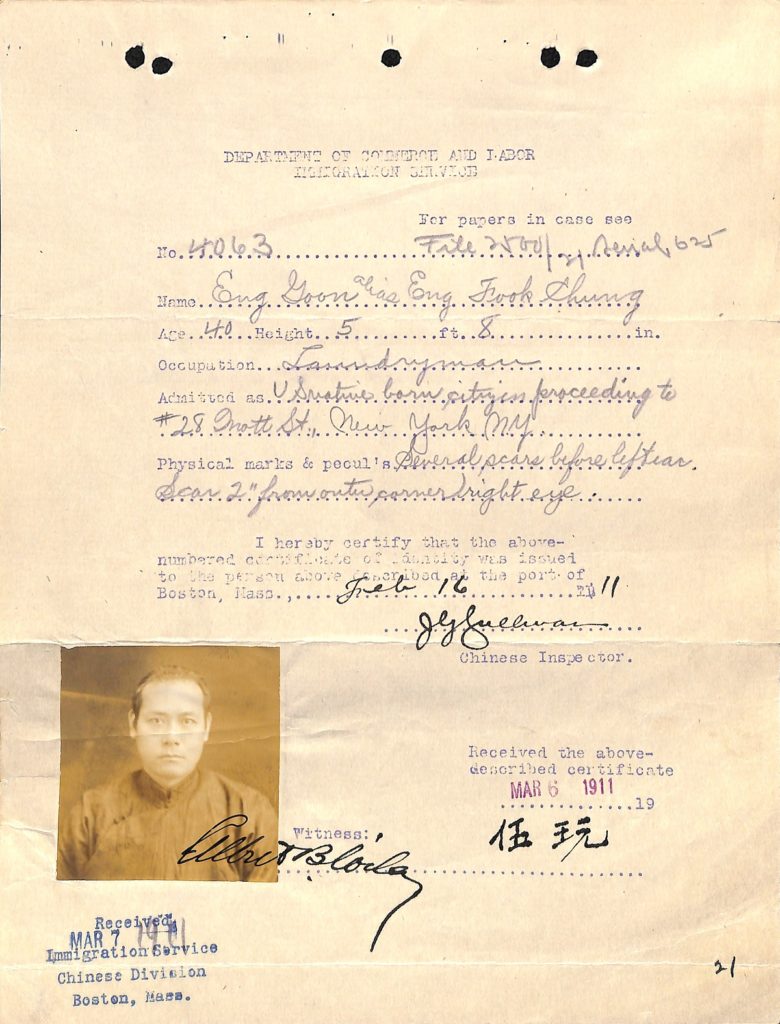 DEPARTMENT OF COMMERCE AND LABOR
IMMIGRATION SERVICE
For papers in case see
No. 4063 File 2500/21 Serial 625
Name Eng Goon alias Eng Fook Chung
Age 40 Height 5 ft 8 in.
Occupation Laundryman
Admitted as U S native born citizen proceeding to
#28 Mott St., New York NY
Physical marks & pecul's Several scars before left ear.
Scar 2" from outer corner right eye.
I hereby certify that the above-
numbered certificate of identity was issued
to the person above described at the port of
Boston, Mass., Feb 16 11
Chinese Inspector.
Received the above-
described certificate
MAR 6 1911
19
Witness:
伍 玩
Received
MAR 7 1911
Immigration Service
Chinese Division
Boston, Mass.
21